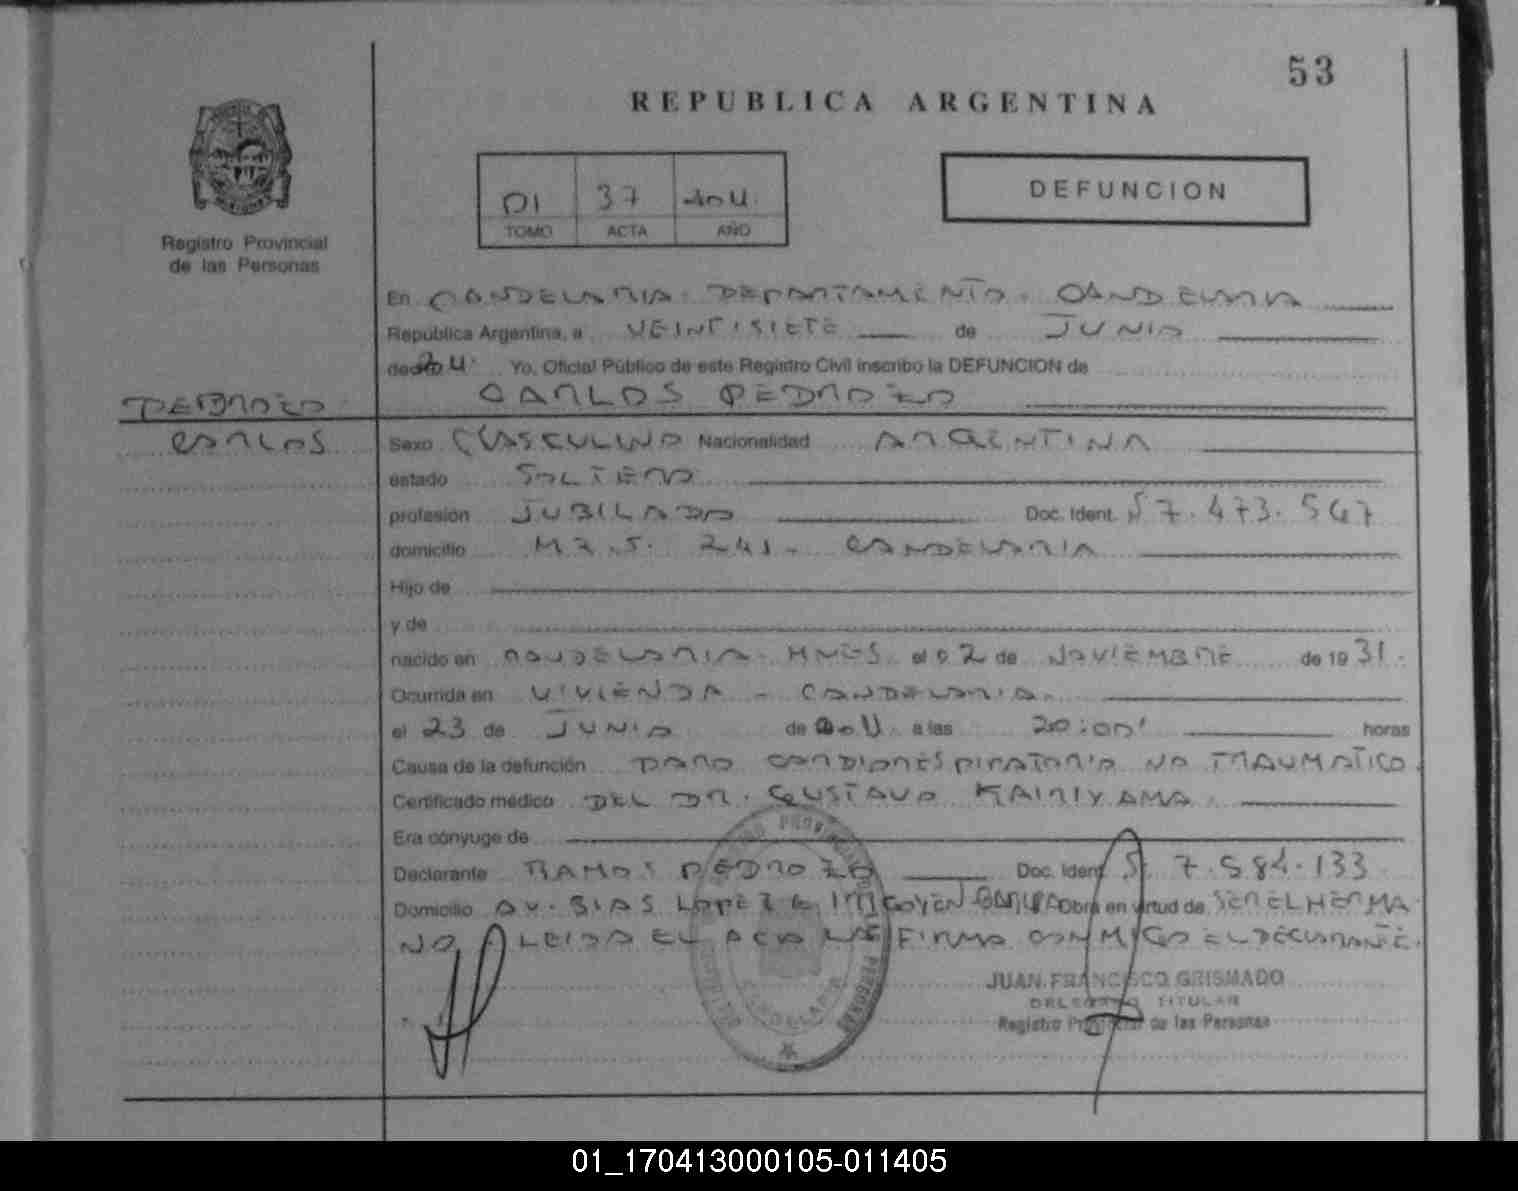 53
REPUBLICA ARGENTINA
DEFUNCION
01 37
TOMO ACTA AÑO
Registro Provincial
de las Personas
En CANDELARIA. DEPARTAMENTO. CANDELARIA
Republica Argentina, a VEINTISIETE de JUNIO
de Yo, Oficial Público de este Registro Civil inscribo la DEFUNCION de
CARLOS PEDROZO
PEDROZO
CARLOS
Sexo MASCULINO Nacionalidad ARGENTINA
estado SOLTERO
profesión JUBILADO Doc. Ident. 7.473.567
domicilio MZ.5. 241. CANDELARIA
Hijo de
y de
nacido en CANDELARIA. MNES. el 02 de NOVIEMBRE de 1931.
Ocurrida en VIVIENDA - CANDELARIA.
el 23 de JUNIO de a las 20:00' horas
Causa de la defunción PARO CARDIORESPIRATORIO NO TRAUMATICO.
Certificado médico DEL DR. GUSTAVO KAIRIYAMA.
Era cónyuge de
Declarante RAMOS PEDROZO Doc. Ident. 7.584.133
Domicilio AV. BLAS LOPEZ E IRIGOYEN Obra en virtud de SER EL HERMA
NO LEIDA EL ACTA LA FIRMA CONMIGO EL DECLARANTE.
REGISTRO PROVINCIAL DE LAS PERSONAS
CANDELARIA
JUAN FRANCISCO GRISMADO
DELEGADO TITULAR
Registro Provincial de las Personas
01_170413000105-011405